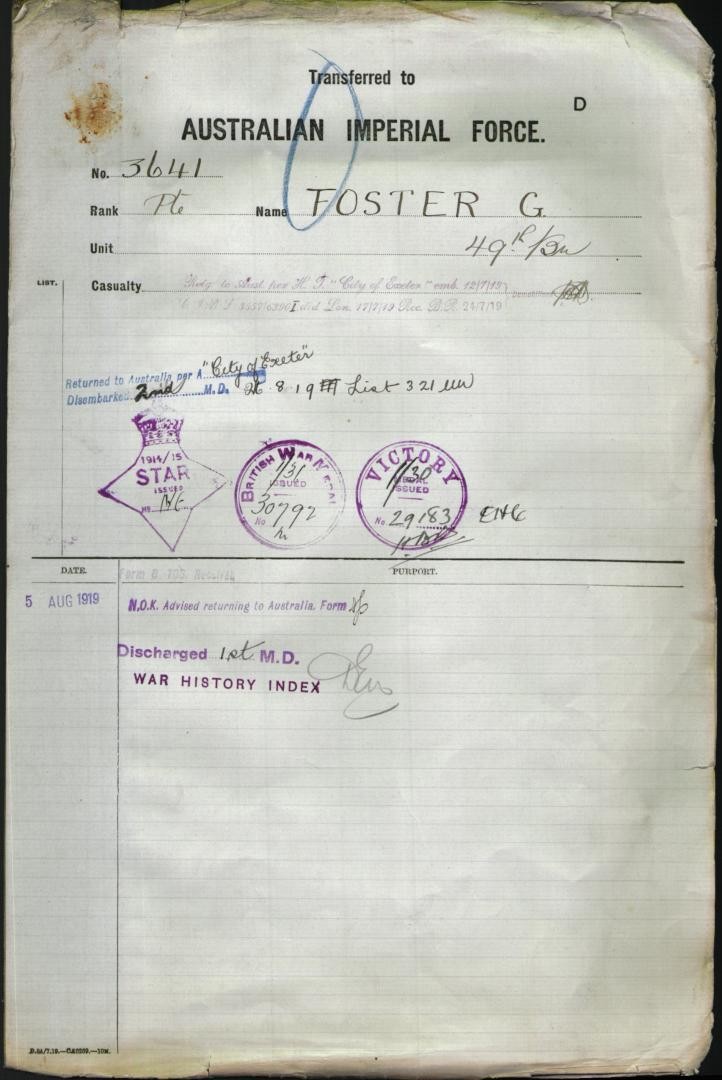 Transferred to
D
AUSTRALIAN IMPERIAL FORCE.
No. 3641
Rank Pte Name FOSTER G.
Unit 49th Bn
LIST.
Casualty Retg to Aust per H.T. "City of Exeter" emb. 12/7/19
Lon. 17/7/19 Rec. B.R. 24/7/19
Returned to Australia per A "City of Exeter"
Disembarked 2nd M.D. 26 8 19 List 321
1914/15
STAR
ISSUED
No
BRITISH WAR MEDAL
1/31
ISSUED
30792
No
VICTORY
1/30
MEDAL
ISSUED
No. 29183
DATE. PURPORT.
Form B. 103. Received
5 AUG 1919 N.O.K. Advised returning to Australia. Form
Discharged 1st M.D.
WAR HISTORY INDEX